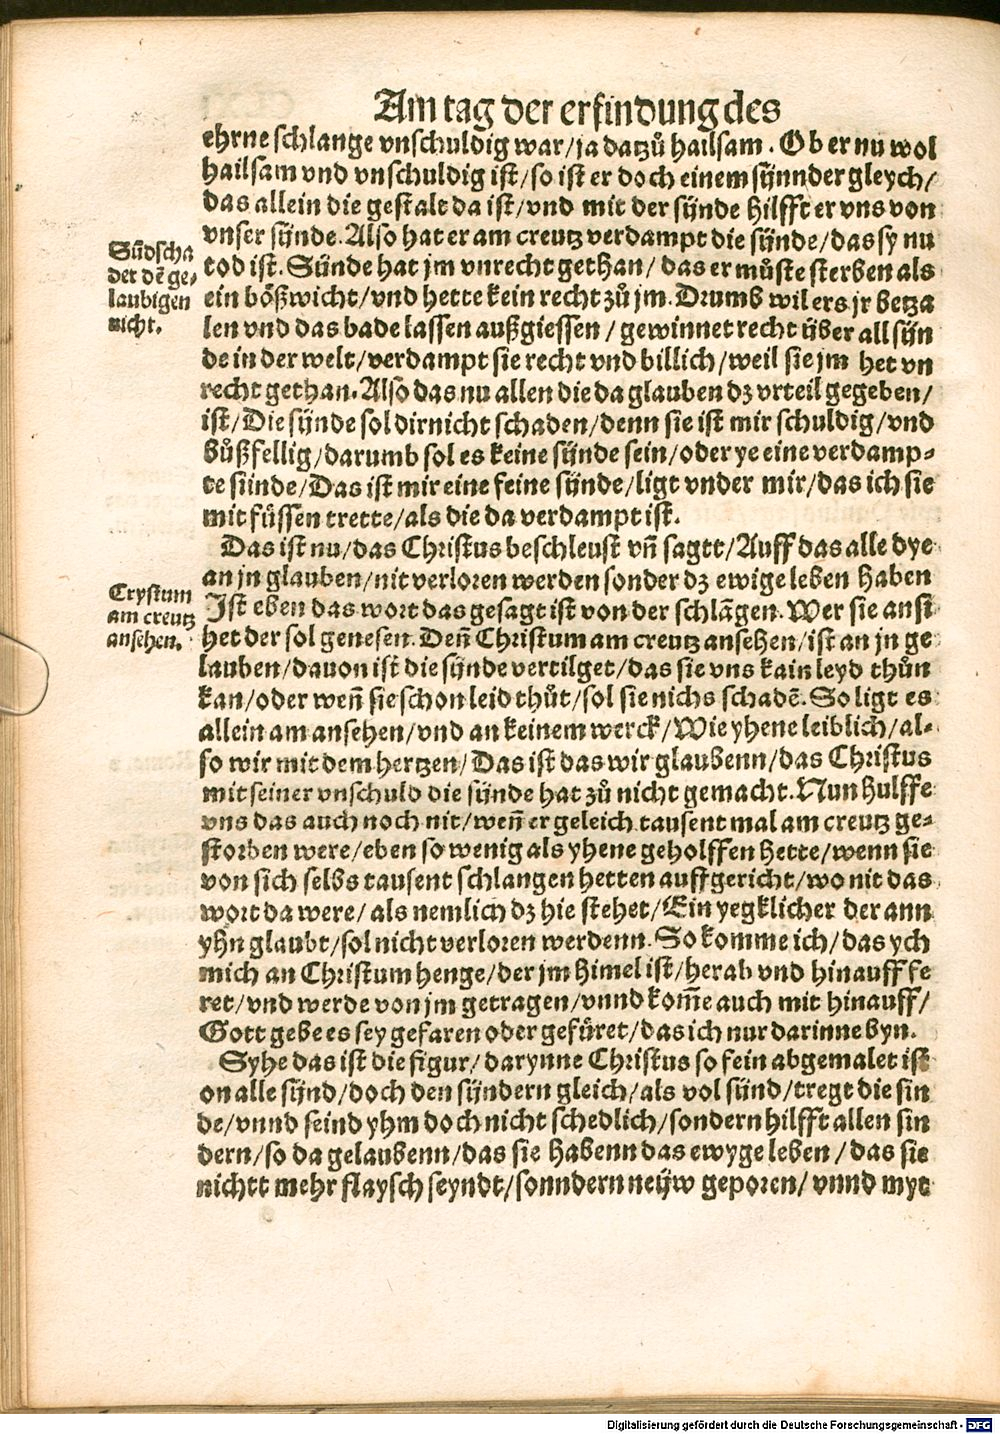 Am tag der erfindung des
ehrne schlange vnschuldig war/ja datzů hailsam. Ob er nu wol
hailsam vnd vnschuldig ist/so ist er doch einem sünnder gleych/
das allein die gestalt da ist/vnd mit der sünde hilfft er vns von
vnser sünde. Also hat er am creutz verdampt die sünde/das sy nu
tod ist. Sünde hat jm vnrecht gethan/das er můste sterben als
ein bößwicht/vnd hette kein recht zů jm. Drumb wil ers jr betza
len vnd das bade lassen außgiessen/gewinnet recht über all sün
de in der welt/verdampt sie recht vnd billich/weil sie jm het vn
recht gethan. Also das nu allen die da glauben dz vrteil gegeben/
ist/Die sünde sol dir nicht schaden/denn sie ist mir schuldig/vnd
bůßfellig/darumb sol es keine sünde sein/oder ye eine verdamp-
te sünde/Das ist mir eine feine sünde/ligt vnder mir/das ich sie
mit füssen trette/als die da verdampt ist.
Südscha
det dē ge-
laubigen
nicht.
Das ist nu/das Christus beschleust vñ sagtt/Auff das alle dye
an jn glauben/nit verloren werden sonder dz ewige leben haben
Ist eben das wort das gesagt ist von der schlāgen. Wer sie ansi
het der sol genesen. Deñ Christum am creutz ansehen/ist an jn ge
lauben/dauon ist die sünde vertilget/das sie vns kain leyd thůn
kan/oder weñ sie schon leid thůt/sol sie nichs schadē. So ligt es
allein am ansehen/vnd an keinem werck/Wie yhene leiblich/al-
so wir mit dem hertzen/Das ist das wir glaubenn/das Christus
mit seiner vnschuld die sünde hat zů nicht gemacht. Nun hulffe
vns das auch noch nit/weñ er geleich tausent mal am creutz ge-
storben were/eben so wenig als yhene geholffen hette/wenn sie
von sich selbs tausent schlangen hetten auffgericht/wo nit das
wort da were/als nemlich dz hie stehet/Ein yegklicher der ann
yhn glaubt/sol nicht verloren werdenn. So komme ich/das ych
mich an Christum henge/der jm himel ist/herab vnd hinauff fe
ret/vnd werde von jm getragen/vnnd kom̄e auch mit hinauff/
Gott gebe es sey gefaren oder gefüret/das ich nur darinne byn.
Crystum
am creutz
ansehen.
Syhe das ist die figur/darynne Christus so fein abgemalet ist
on alle sünd/doch den sündern gleich/als vol sünd/tregt die sin
de/vnnd seind yhm doch nicht schedlich/sondern hilfft allen sin
dern/so da gelaubenn/das sie habenn das ewyge leben/das sie
nichtt mehr flaysch seyndt/sonndern neüw geporen/vnnd myt
Digitalisierung gefördert durch die Deutsche Forschungsgemeinschaft - DFG